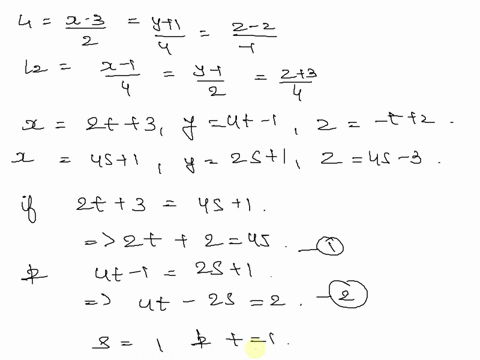 L1 = x-3/2 = y+1/4 = z-2/-1
L2 = x-1/4 = y-1/2 = z+3/4
x = 2t+3, y = 4t-1, z = -t+2.
x = 4s+1, y = 2s+1, z = 4s-3.
if 2t+3 = 4s+1.
=> 2t + 2 = 4s. —①
& 4t-1 = 2s+1.
=> 4t - 2s = 2. —②
s = 1 & t = 1.